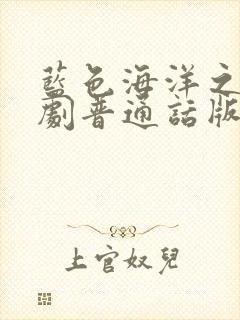 藍色海洋之
劇普通話版
上官奴兒